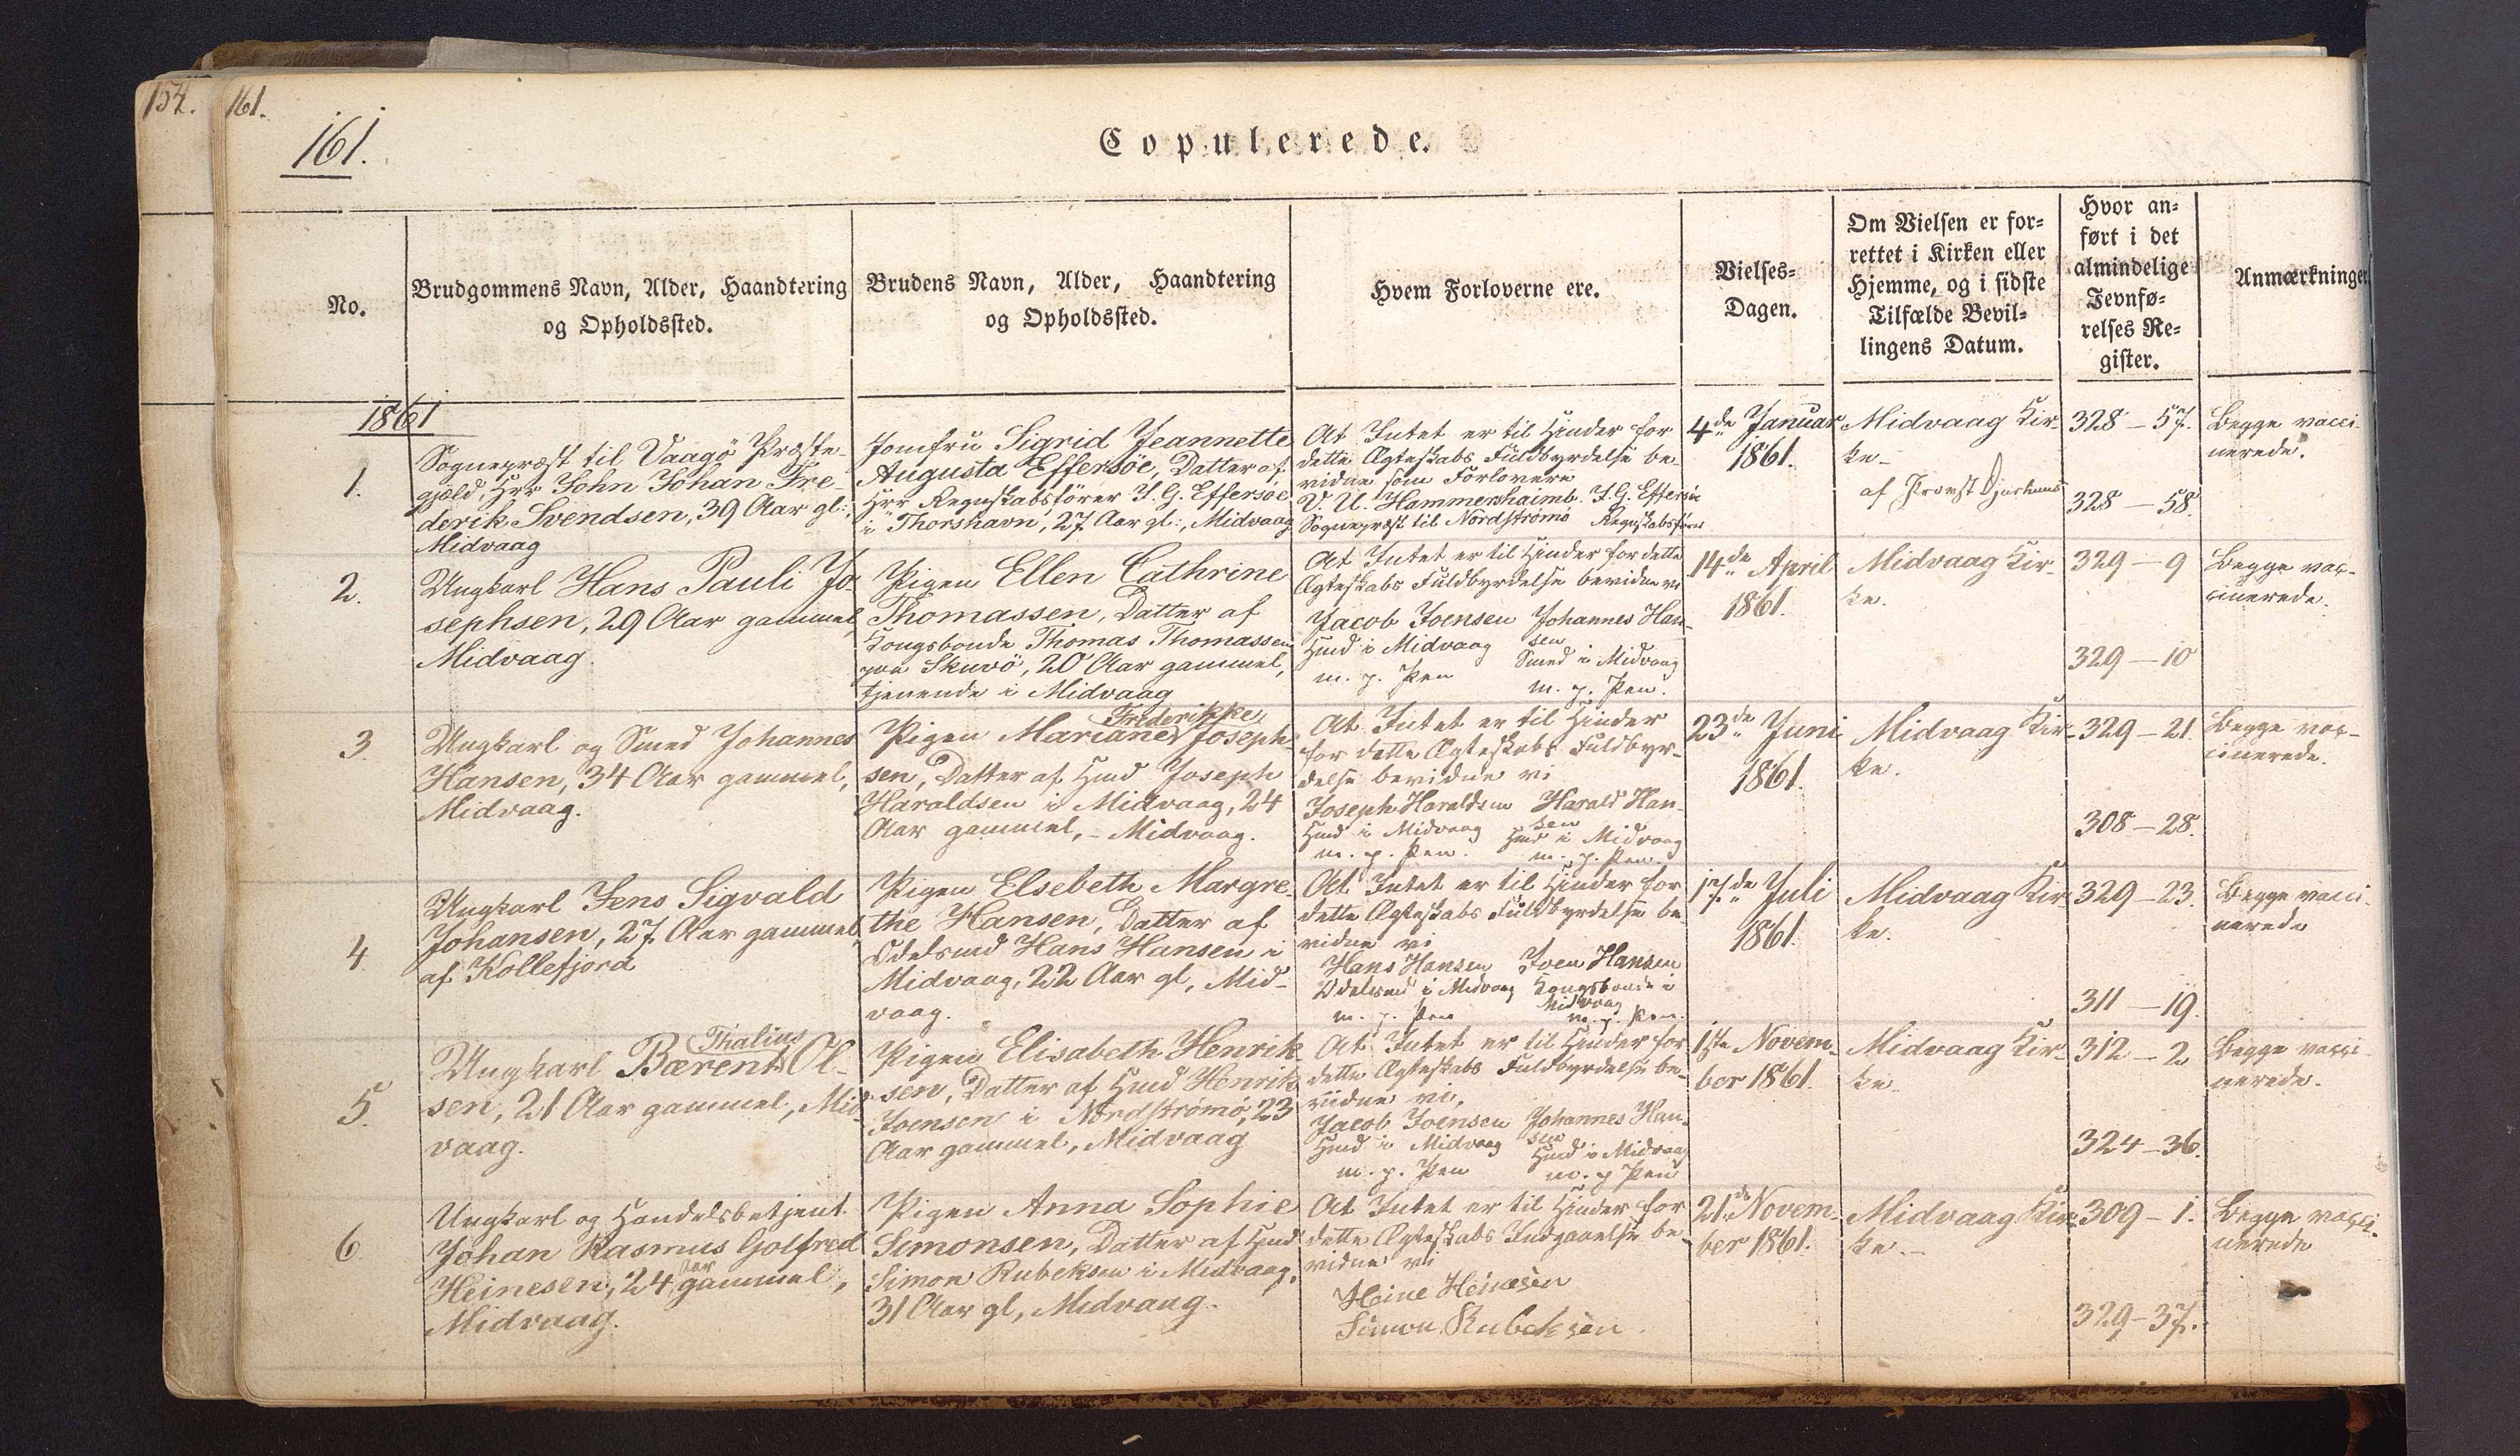 154.
161.
161.
Copulerede.
No.
Brudgommens Navn, Alder, Haandtering
og Opholdssted.
Brudens Navn, Alder, Haandtering
og Opholdssted.
Hvem Forloverne ere.
Vielses-
Dagen.
Om Vielsen er for-
rettet i Kirken eller
Hjemme, og i sidste
Tilfælde Bevil-
lingens Datum.
Hvor an-
ført i det
almindelige
Jevnfø-
relses Re-
gister.
Anmærkninger
1861
1.
Sognepræst til Vaagö Præste-
gjeld, Hrr John Johan Fre-
derik Svendsen, 39 Aar gl:,
Midvaag
Jomfru Sigrid Jeannette
Augusta Effersöe, Datter af
Hrr Regnskabsförer J. G. Effersöe
i Thorshavn, 27 Aar gl:, Midvaag
At Intet er til Hinder for
dette Ægteskabs Fuldbyrdelse be-
vidne som Forlovere
V. U. Hammershaimb. J. G. Effersöe
Sognepræst til Nordströmö Regnskabsförer
4de Januar
1861.
Midvaag Kir-
ke-
af Provst
328 - 57.
328 - 58.
Begge vacci-
nerede.
2.
Ungkarl Hans Pauli Jo-
sephsen, 29 Aar gammel,
Midvaag.
Pigen Ellen Cathrine
Thomassen, Datter af
Kongsbonde Thomas Thomassen
paa Skuvö, 20 Aar gammel,
tjenende i Midvaag
At Intet er til Hinder for dette
Ægteskabs Fuldbyrdelse bevidne vi
Jacob Joensen Johannes Han-
sen
Hmd i Midvaag Smed i Midvaag
m. p. Pen m. p. Pen.
14de April
1861.
Midvaag Kir-
ke.
329 - 9
329 - 10
Begge vac-
cinerede.
3.
Ungkarl og Smed Johannes
Hansen, 34 Aar gammel,
Midvaag.
Frederikke
Pigen Mariane Joseph-
sen, Datter af Hmd Joseph
Haraldsen i Midvaag, 24
Aar gammel, - Midvaag.
At Intet er til Hinder
for dette Ægteskabs Fuldbyr-
delse bevidne vi
Joseph Haraldsen Harald Han-
sen
Hmd i Midvaag Hmd i Midvaag
m. p. Pen. m. p. Pen.
23de Juni
1861.
Midvaag Kir-
ke.
329 - 21.
308 - 28.
Begge vac-
cinerede.
4
Ungkarl Jens Sigvald
Johansen, 27 Aar gammel,
af Kollefjord
Pigen Elsebeth Margre-
the Hansen, Datter af
Odelsmd Hans Hansen i
Midvaag, 22 Aar gl, Mid-
vaag.
At Intet er til Hinder for
dette Ægteskabs Fuldbyrdelse be-
vidne vi
Hans Hansen Joen Hansen
Odelsmd i Midvaag Kongsbonde i
Midvaag
m. p. Pen m. p. Pen.
17de Juli
1861.
Midvaag Kir-
ke.
329 - 23.
311 - 19.
Begge vacci-
nerede
5.
Thalius
Ungkarl Bærent Ol-
sen, 21 Aar gammel, Mid-
vaag.
Pigen Elisabeth Henrik-
sen, Datter af Hmd Henrik
Joensen i Nordströmö, 23
Aar gammel, Midvaag
At Intet er til Hinder for
dette Ægteskabs Fuldbyrdelse be-
vidne vi,
Jacob Joensen Johannes Han-
sen
Hmd i Midvaag Hmd i Midvaag
m. p. Pen m. p Pen
1ste Novem-
ber 1861.
Midvaag Kir-
ke
312 - 2
324 - 36.
Begge vacci-
nerede.
6.
Ungkarl og Handelsbetjent
Johan Rasmus Golfred
Heinesen, 24 Aar gammel,
Midvaag.
Pigen Anna Sophie
Simonsen, Datter af Hmd
Simon Rubeksen i Midvaag,
31 Aar gl, Midvaag.
At Intet er til Hinder for
dette Ægteskabs Indgaaelse be-
vidne vi
Heine Heinesen
Simon Rubeksen
21de Novem-
ber 1861.
Midvaag Kir-
ke.-
309 - 1.
329 - 37.
Begge vacci-
nerede